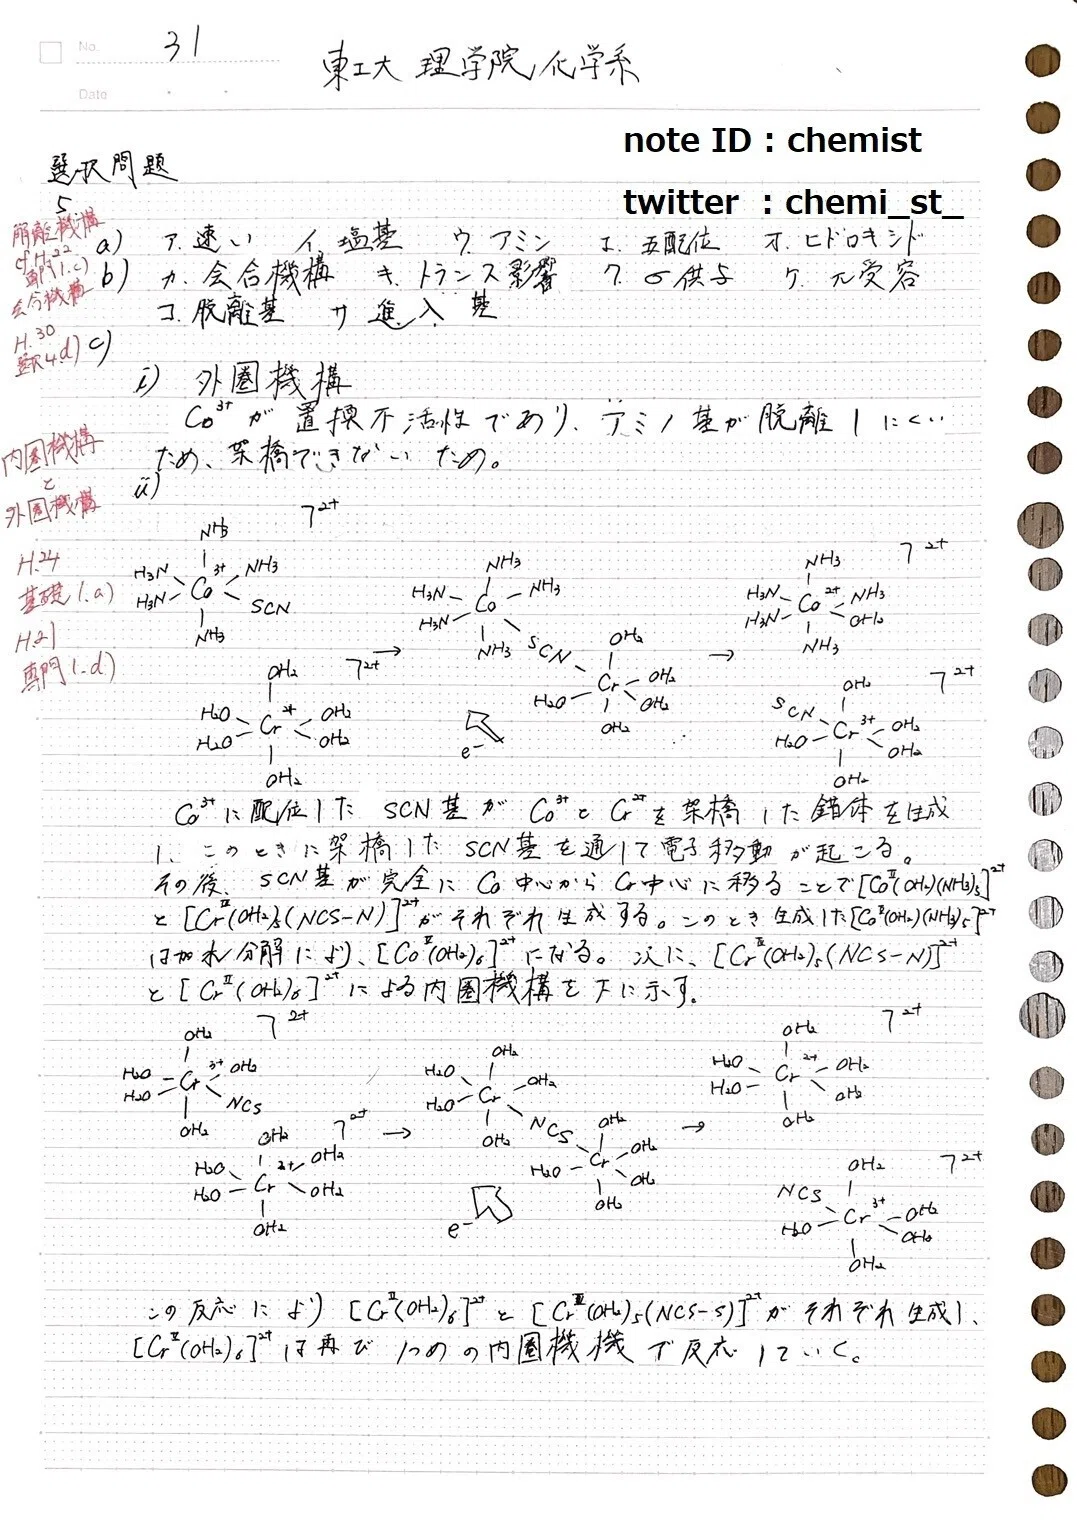 No. 31
Date
東工大 理学院 化学系
note ID : chemist
twitter : chemi_st_
選択問題
5
崩離機構
cf. H.22
専門1.c)
会合機構
H.30
選択4.d)
a) ア. 速い イ. 塩基 ウ. アミン エ. 五配位 オ. ヒドロキシド
b) カ. 会合機構 キ. トランス影響 ク. σ供与 ケ. π受容
コ. 脱離基 サ 進入基
c)
i) 外圏機構
Co³⁺が置換不活性であり、アミノ基が脱離しにくい
ため、架橋できないため。
内圏機構
と
外圏機構
H.24
基礎1.a)
H.21
専門1.d)
ii)
NH₃ ⏋²⁺
H₃N Co³⁺ NH₃
H₃N SCN
NH₃
OH₂ ⏋²⁺
H₂O Cr²⁺ OH₂
H₂O OH₂
OH₂
→
NH₃
H₃N Co NH₃
H₃N
NH₃ SCN OH₂
H₂O Cr OH₂
OH₂
OH₂
e⁻
→
NH₃ ⏋²⁺
H₃N Co²⁺ NH₃
H₃N OH₂
NH₃
OH₂ ⏋²⁺
SCN Cr³⁺ OH₂
H₂O OH₂
OH₂
Co³⁺に配位した SCN基が Co³⁺と Cr²⁺を架橋した錯体を生成
し、このときに架橋した SCN基を通して電子移動が起こる。
その後、SCN基が完全に Co中心から Cr中心に移ることで[Co^Ⅱ(OH₂)(NH₃)₅]²⁺
と[Cr^Ⅲ(OH₂)₅(NCS-N)]²⁺がそれぞれ生成する。このとき生成した[Co^Ⅱ(OH₂)(NH₃)₅]²⁺
は加水分解により、[Co^Ⅱ(OH₂)₆]²⁺になる。次に、[Cr^Ⅲ(OH₂)₅(NCS-N)]²⁺
と[Cr^Ⅱ(OH₂)₆]²⁺による内圏機構を下に示す。
OH₂ ⏋²⁺
H₂O Cr³⁺ OH₂
H₂O NCS
OH₂
OH₂ ⏋²⁺
H₂O Cr²⁺ OH₂
H₂O OH₂
OH₂
→
OH₂
H₂O Cr OH₂
H₂O
OH₂ NCS OH₂
H₂O Cr OH₂
OH₂
OH₂
e⁻
→
OH₂ ⏋²⁺
H₂O Cr²⁺ OH₂
H₂O OH₂
OH₂
OH₂ ⏋²⁺
NCS Cr³⁺ OH₂
H₂O OH₂
OH₂
この反応により [Cr^Ⅱ(OH₂)₆]²⁺と[Cr^Ⅲ(OH₂)₅(NCS-S)]²⁺がそれぞれ生成し、
[Cr^Ⅱ(OH₂)₆]²⁺は再び1つめの内圏機機で反応していく。